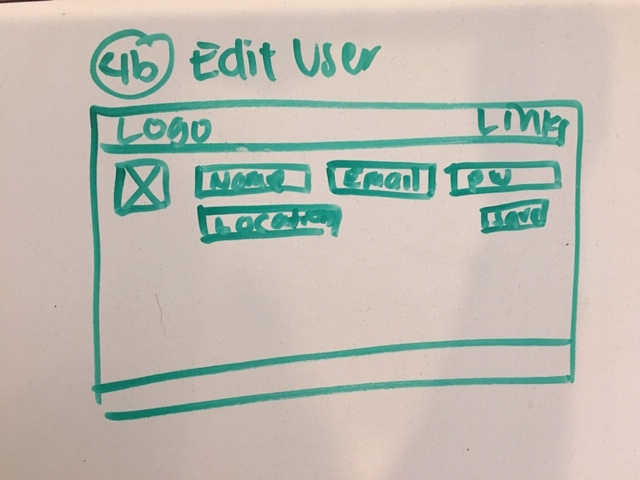 4b Edit User
Logo Links
Name Email PW
Location Save